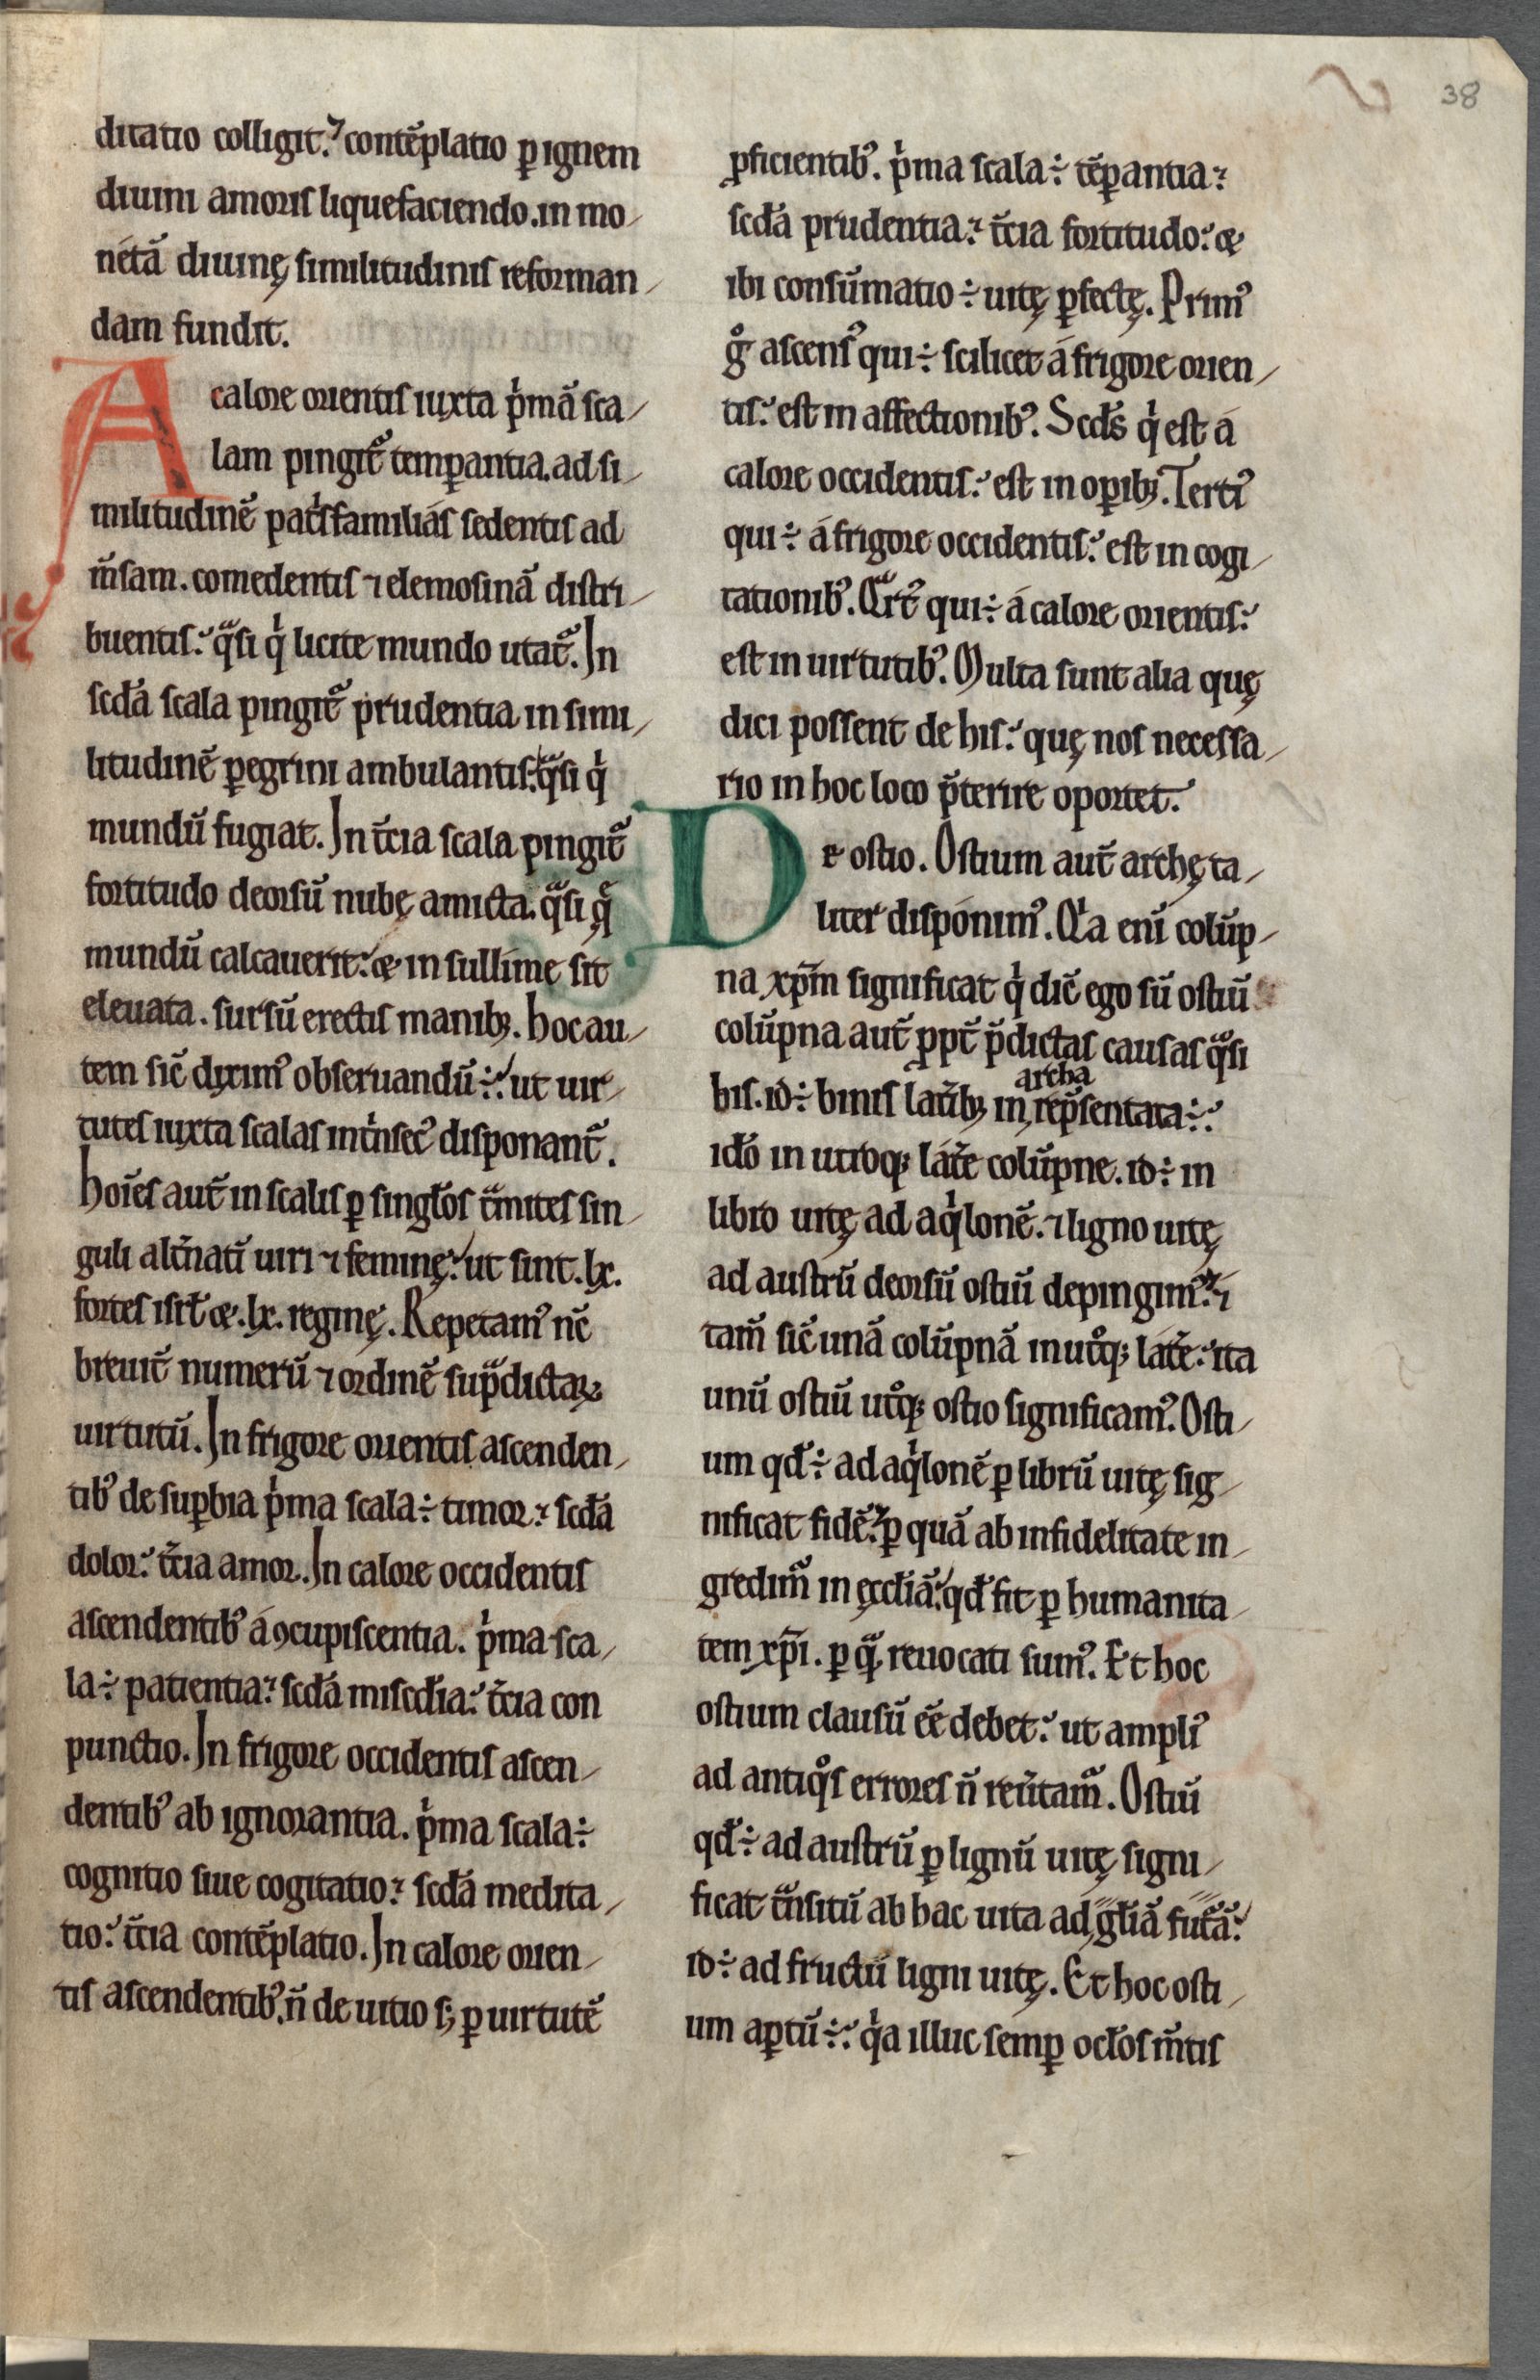 38
ditatio colligit. contẽplatio ꝑ ignem
diuini amoris liquefaciendo. in mo/
netã diuinę similitudinis reforman/
dam fundit.
A calore orientis iuxta pⁱmã sca/
lam pingit᷑ temꝑantia. ad si/
militudinẽ patⁱsfamilias sedentis ad
m̃sam. comedentis ⁊ elemosinã distri/
buentis. qᵃsi qⁱ licite mundo utat᷑. In
scđa scala pingit᷑ prudentia in simi/
litudinẽ ꝑegrini ambulantis. qᵃsi qⁱ
mundũ fugiat. In t̃cia scala pingit᷑
fortitudo deorsũ nubę amicta. qᵃsi qᵉ̨
mundũ calcauerit. & in sullime sit
eleuata. sursũ erectis manibꝫ. hoc au/
tem sic̃ diximꝰ obseruandũ ÷. ut uir/
tutes iuxta scalas intⁱnsecꝰ disponant᷑.
hoĩes aut̃ in scalis ꝑ singłos tᵃmites sin/
guli alt̃nati uiri ⁊ feminę. ut sint .lx.
fortes isrł & .lx. reginę. Repetamꝰ nc̃
breuit̃ numerũ ⁊ ordinẽ supᵃdictaꝝ
uirtutũ. In frigore orientis ascenden/
tibꝰ de suꝑbia pⁱma scala ÷ timor. scđa
dolor. t̃cia amor. In calore occidentis
ascendentibꝰ a ꝯcupiscentia. pⁱma sca/
la ÷ patientia. scđa miscđia. t̃cia con
punctio. In frigore occidentis ascen/
dentibꝰ ab ignorantia. pⁱma scala ÷
cognitio siue cogitatio. scđa medita/
tio. t̃cia contẽplatio. In calore orien/
tis ascendentibꝰ. ñ de uitio sꝫ ꝑ uirtutẽ
ꝓficientibꝰ. pⁱma scala ÷ tẽꝑantia.
scđa prudentia. t̃cia fortitudo. &
ibi consũmatio ÷ uitę ꝑfectę. Primꝰ
gᵒ ascensꝰ qui ÷ scilicet a frigore orien/
tis. est in affectionibꝰ. Scđs qⁱ est a
calore occidentis. est in oꝑibꝫ. Tertiꝰ
qui ÷ a frigore occidentis. est in cogi/
tationibꝰ. Qᵃrtꝰ qui ÷ a calore orientis.
est in uirtutibꝰ. Multa sunt alia quę
dici possent de his. quę nos necessa/
rio in hoc loco p̃terire oportet.
De ostio. Ostium aut̃ archę ta/
liter disponimꝰ. Qⁱa enĩ colũp/
na xp̃m significat qⁱ dic̃ ego sũ ostiũ
colũpna aut̃ ꝓpt̃ p̃dictas causas qᵃsi
archa
bis. id ÷ binis lat̃ibꝫ in rep̃sentata ÷.
idõ in utroqꝫ lat̃e colũpne. id ÷ in
libro uitę ad aqⁱlonẽ. ⁊ ligno uitę
ad austrũ deorsũ ostiũ depingimꝰ. ⁊
tam̃ sic̃ unã colũpnã in utᵒqꝫ lat̃e. ita
unũ ostiũ utᵒqꝫ ostio significamꝰ. Osti/
um qđ ÷ ad aqⁱlonẽ ꝑ librũ uitę sig/
nificat fidẽ. ꝑ quã ab infidelitate in/
gredimᷣ in ęcclã. qđ fit ꝑ humanita/
tem xp̃i. ꝑ qᵃ̃ reuocati sumꝰ. Et hoc
ostium clausũ eẽ debet. ut ampliꝰ
ad antiqᵒs errores ñ reũtamᷣ. Ostiũ
qđ ÷ ad austrũ ꝑ lignũ uitę signi/
ficat tᵃnsitũ ab hac uita ad głiã futᵃã.
id ÷ ad fructũ ligni uitę. Et hoc osti/
um aꝑtũ ÷. qⁱa illuc semꝑ ocłos m̃tis